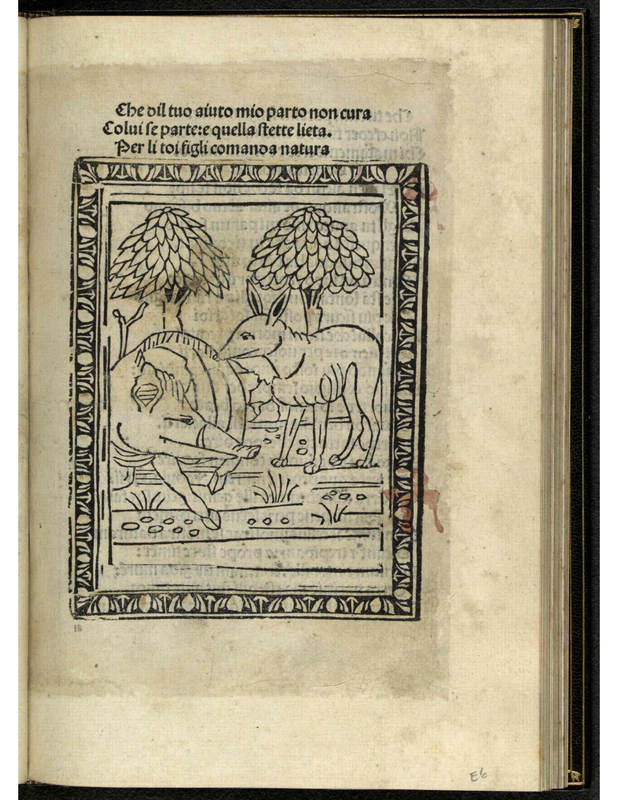 Che dil tuo aiuto mio parto non cura
Colui se parte:e quella stette lieta.
Per li toi figli comanda natura
18
E6